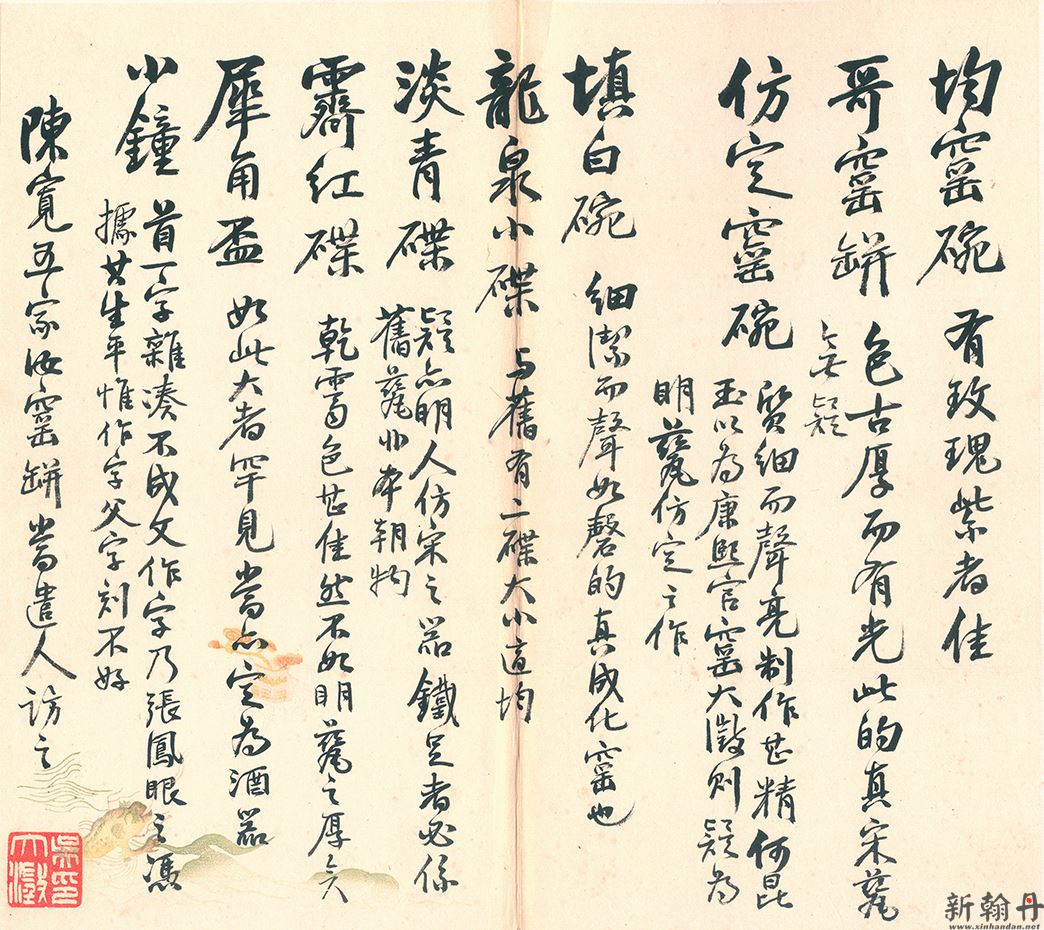 均窑碗 有玫瑰紫者佳
哥窑缾 色古厚而有光此的真宋甆
無疑
仿定窑碗 質細而聲亮制作甚精何昆
玉以為康熙官窑大澂則疑為
明甆仿定之作
填白碗 細潔而聲如磬的真成化窑也
龍泉小碟 与舊有二碟大小適均
淡青碟 疑亦明人仿宋之器鐵足者必係
舊甆非本朝物
霽紅碟 乾霁色甚佳然不如明甆之厚矣
犀角盃 如此大者罕見當亦定為酒器
小鐘 首一字雜湊不成文作字乃張鳳眼之憑
據其生平惟作字父字刻不好
陳寬五家汝窑缾當遣人訪之
吳大澂印
新翰丹
www.xinhandan.net